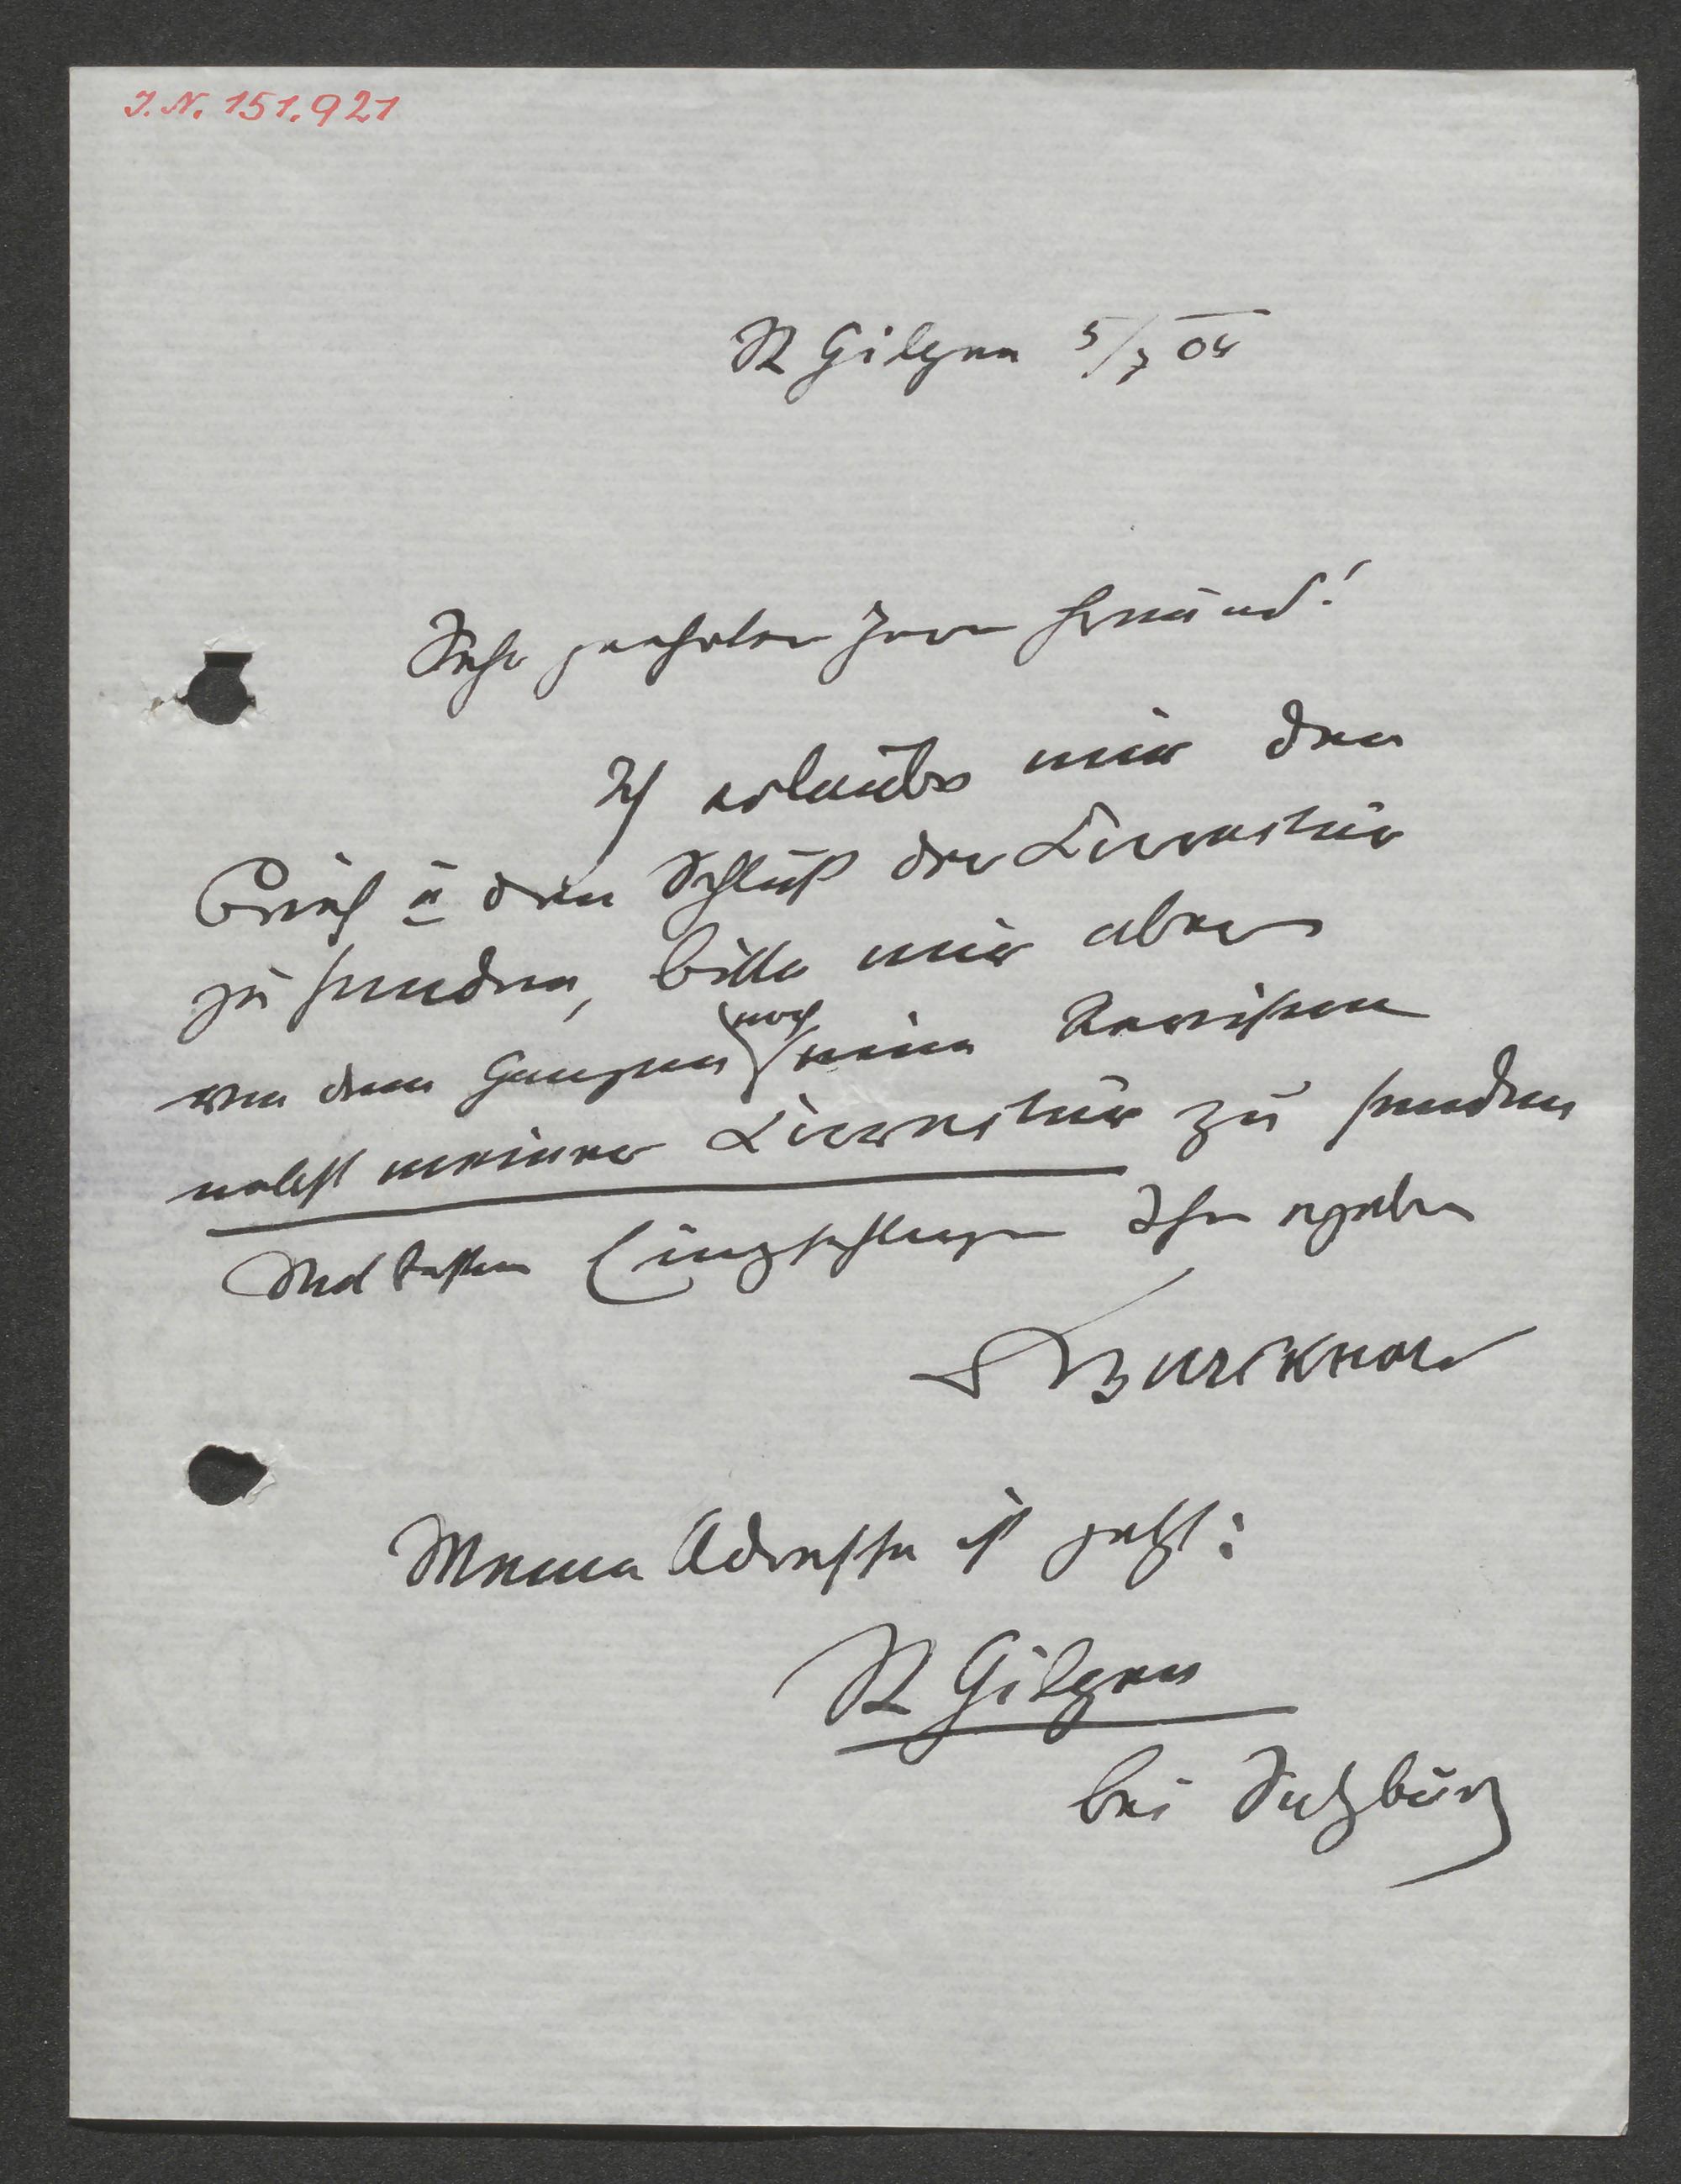 J. N. 151.921
St Gilgen 5/7 04
Sehr geehrter Herr Freund!
Ich erlaube mir den
u den Schluß der Correctur
zu senden, bitte mir aber
von dem Ganzen noch eine Revision
nebst meiner Correctur zu senden
Mit besten Empfehlungen Ihr ergebener
Burckhard
Meine Adresse ist jetzt:
St Gilgen
bei Salzburg